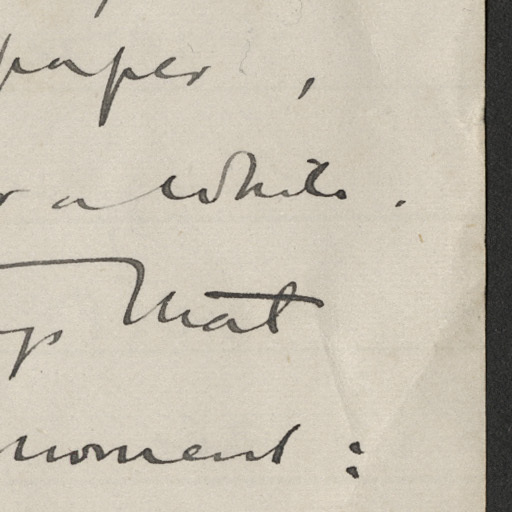 paper,
a while.
that
moment: